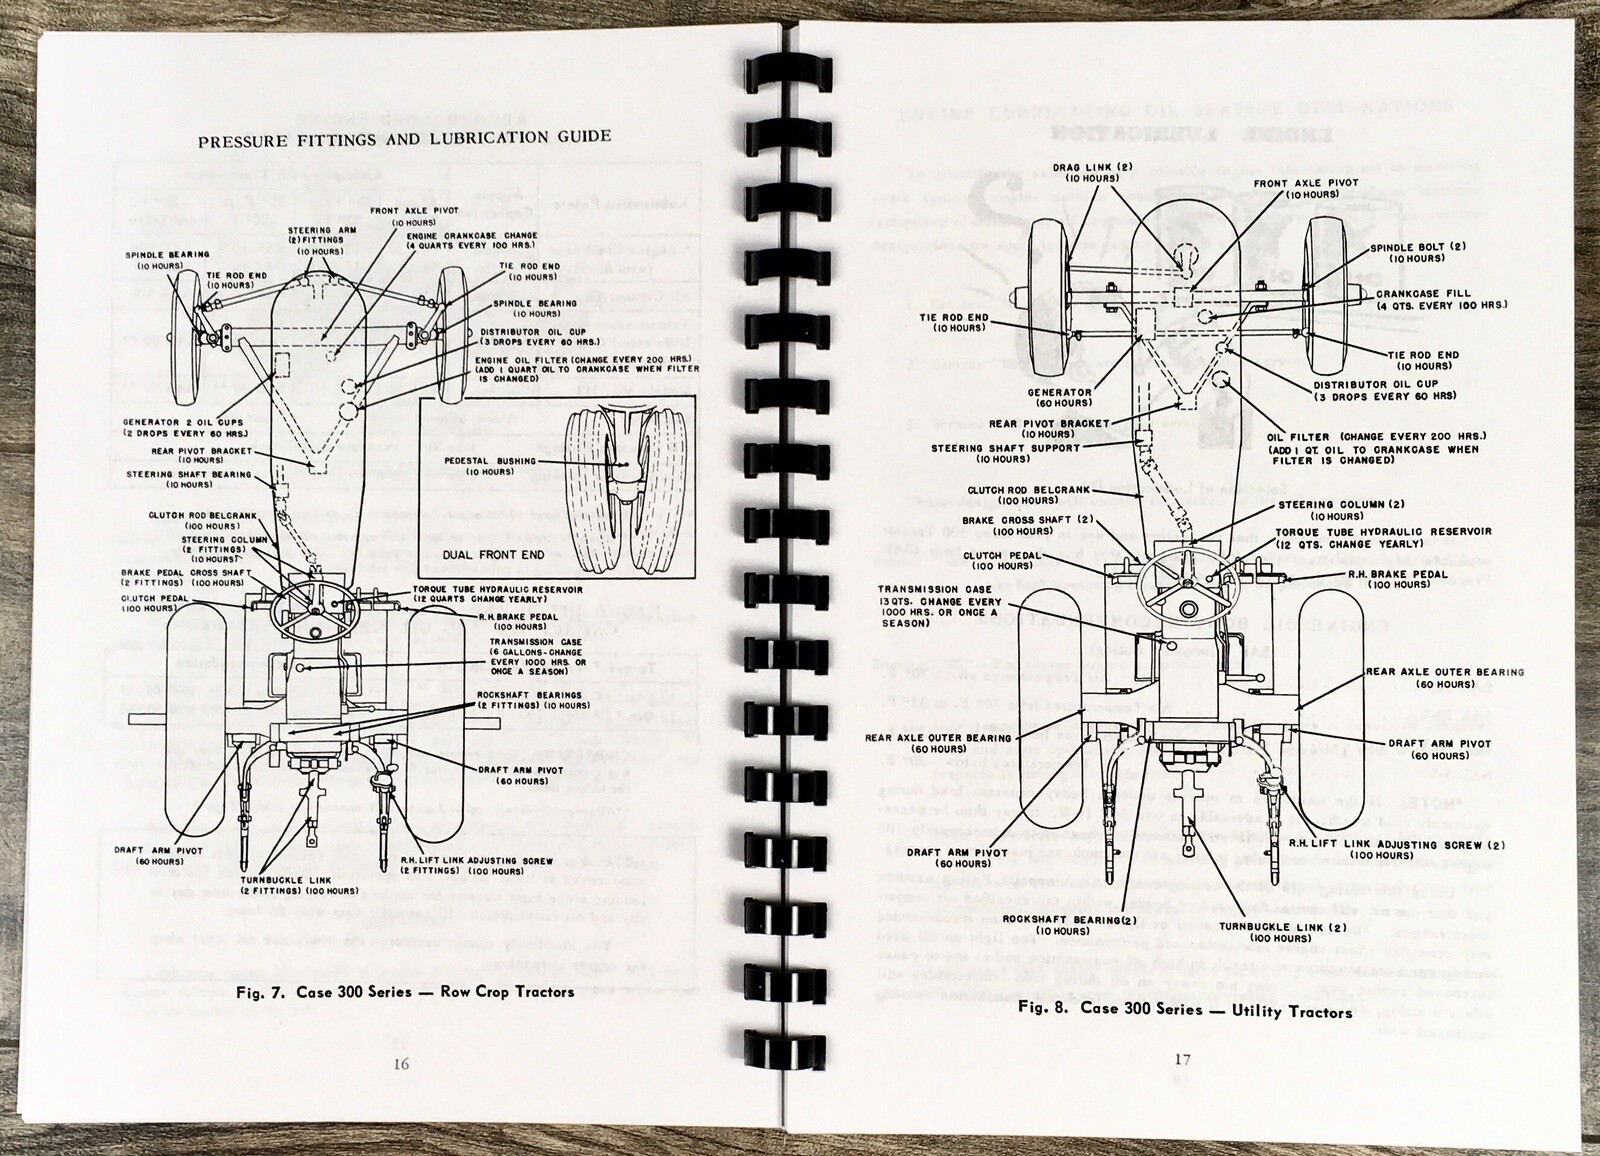 PRESSURE FITTINGS AND LUBRICATION GUIDE
FRONT AXLE PIVOT
(10 HOURS)
STEERING ARM
(2) FITTINGS
(10 HOURS)
ENGINE CRANKCASE CHANGE
(4 QUARTS EVERY 100 HRS.)
SPINDLE BEARING
(10 HOURS)
TIE ROD END
(10 HOURS)
TIE ROD END
(10 HOURS)
SPINDLE BEARING
(10 HOURS)
DISTRIBUTOR OIL CUP
(3 DROPS EVERY 60 HRS.)
ENGINE OIL FILTER (CHANGE EVERY 200 HRS.)
(ADD 1 QUART OIL TO CRANKCASE WHEN FILTER
IS CHANGED)
GENERATOR 2 OIL CUPS
(2 DROPS EVERY 60 HRS.)
REAR PIVOT BRACKET
(10 HOURS)
STEERING SHAFT BEARING
(10 HOURS)
PEDESTAL BUSHING
(10 HOURS)
DUAL FRONT END
CLUTCH ROD BELCRANK
(100 HOURS)
STEERING COLUMN
(2 FITTINGS)
(10 HOURS)
BRAKE PEDAL CROSS SHAFT
(2 FITTINGS) (100 HOURS)
CLUTCH PEDAL
(100 HOURS)
TORQUE TUBE HYDRAULIC RESERVOIR
(12 QUARTS CHANGE YEARLY)
R.H. BRAKE PEDAL
(100 HOURS)
TRANSMISSION CASE
(6 GALLONS-CHANGE
EVERY 1000 HRS. OR
ONCE A SEASON)
ROCKSHAFT BEARINGS
(2 FITTINGS) (10 HOURS)
DRAFT ARM PIVOT
(60 HOURS)
DRAFT ARM PIVOT
(60 HOURS)
R.H. LIFT LINK ADJUSTING SCREW
(2 FITTINGS) (100 HOURS)
TURNBUCKLE LINK
(2 FITTINGS) (100 HOURS)
Fig. 7. Case 300 Series — Row Crop Tractors
16
DRAG LINK (2)
(10 HOURS)
FRONT AXLE PIVOT
(10 HOURS)
SPINDLE BOLT (2)
(10 HOURS)
CRANKCASE FILL
(4 QTS. EVERY 100 HRS.)
TIE ROD END
(10 HOURS)
TIE ROD END
(10 HOURS)
GENERATOR
(60 HOURS)
DISTRIBUTOR OIL CUP
(3 DROPS EVERY 60 HRS)
REAR PIVOT BRACKET
(10 HOURS)
STEERING SHAFT SUPPORT
(10 HOURS)
OIL FILTER (CHANGE EVERY 200 HRS.)
(ADD 1 QT. OIL TO CRANKCASE WHEN
FILTER IS CHANGED)
CLUTCH ROD BELCRANK
(100 HOURS)
STEERING COLUMN (2)
(10 HOURS)
BRAKE CROSS SHAFT (2)
(100 HOURS)
TORQUE TUBE HYDRAULIC RESERVOIR
(12 QTS. CHANGE YEARLY)
CLUTCH PEDAL
(100 HOURS)
R.H. BRAKE PEDAL
(100 HOURS)
TRANSMISSION CASE
13 QTS. CHANGE EVERY
1000 HRS. OR ONCE A
SEASON)
REAR AXLE OUTER BEARING
(60 HOURS)
REAR AXLE OUTER BEARING
(60 HOURS)
DRAFT ARM PIVOT
(60 HOURS)
DRAFT ARM PIVOT
(60 HOURS)
R.H. LIFT LINK ADJUSTING SCREW (2)
(100 HOURS)
ROCKSHAFT BEARING(2)
(10 HOURS)
TURNBUCKLE LINK (2)
(100 HOURS)
Fig. 8. Case 300 Series — Utility Tractors
17